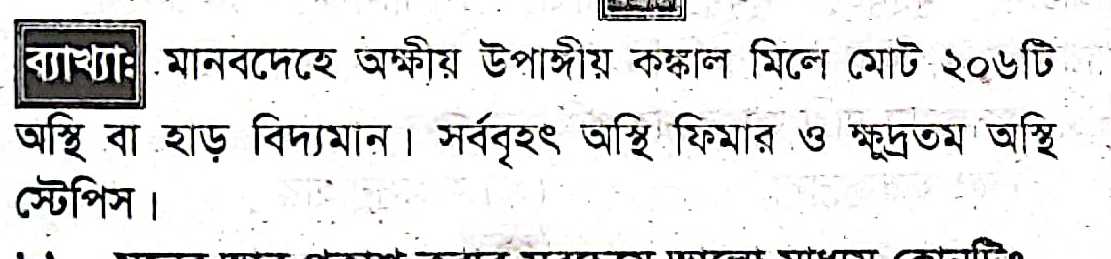 ব্যাখ্যা: মানবদেহে অক্ষীয় উপাঙ্গীয় কঙ্কাল মিলে মোট ২০৬টি
অস্থি বা হাড় বিদ্যমান। সর্ববৃহৎ অস্থি ফিমার ও ক্ষুদ্রতম অস্থি
স্টেপিস।